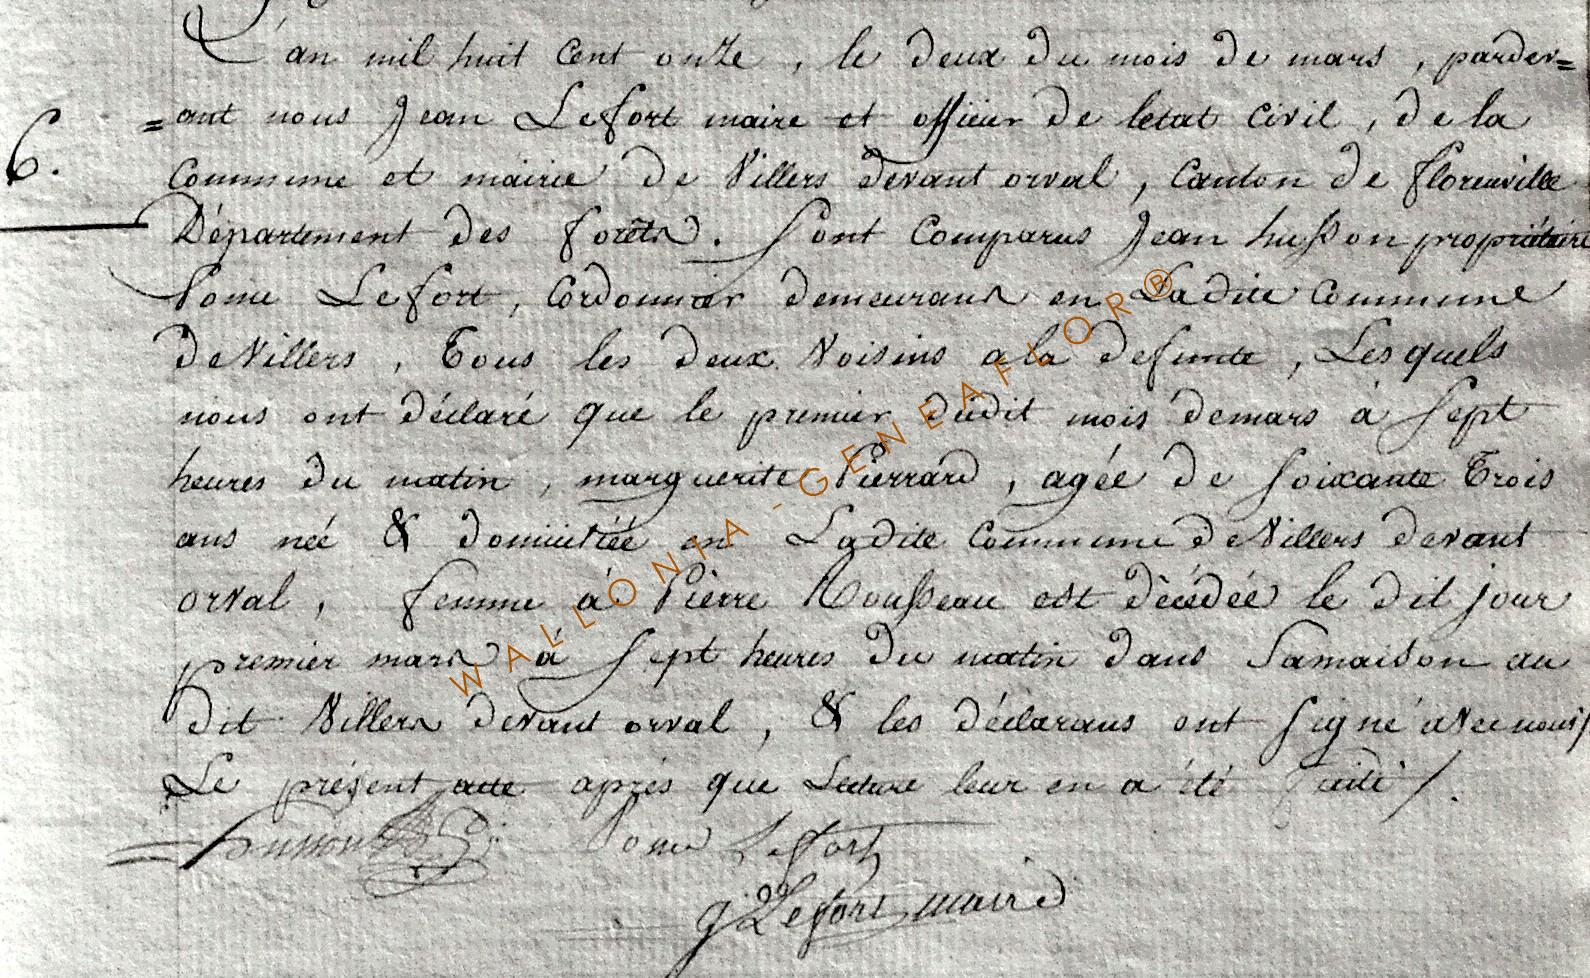 L'an mil huit Cent onze, le deux du mois de mars, pardev=
6.
=ant nous Jean Lefort maire et officier de létat Civil, de la
Commune et mairie de Villers devant orval, Canton de florenville
Département des forêts. Sont Comparus Jean husson propriétaire
Pome Lefort, Cordonnier demeurans en Ladite Commune
de Villers, Tous les deux Voisins a la defunte, Les quels
nous ont déclaré que le premier dudit mois de mars à Sept
heures du matin, marguerite Pierrard, agée de Soixante Trois
ans née & domiciliée en Ladite Commune de Villers devant
orval, femme à Pierre Rousseau est décédée le dit jour
premier mars à Sept heures du matin dans Sa maison au
dit Villers devant orval, & les déclarans ont Signé avec nous
Le présent acte après que Lecture leur en a été faite /.
husson Pome Lefort
g Lefort maire
WALLONIA-GENEAFLOR®